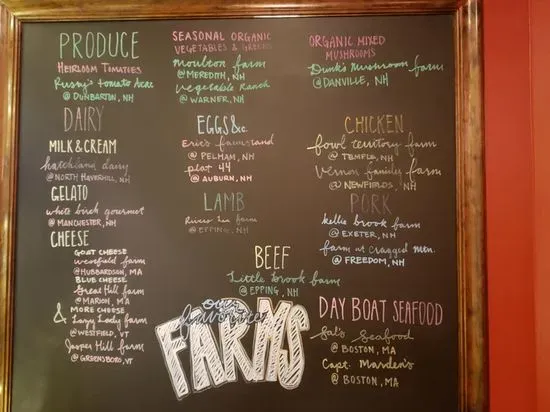 PRODUCE
HEIRLOOM TOMATOES
Rusny's tomato Acre
@ DUNBARTON, NH
SEASONAL ORGANIC
VEGETABLES & GREENS
moulton farm
@ MEREDITH, NH
vegetable Ranch
@ WARNER, NH
ORGANIC MIXED
MUSHROOMS
Dunk's Mushroom farm
@ DANVILLE, NH
DAIRY
MILK & CREAM
hatchland dairy
@ NORTH HAVERHILL, NH
GELATO
white birch gourmet
@ MANCHESTER, NH
CHEESE
GOAT CHEESE
westfield farm
@ HUBBARDSON, MA
BLUE CHEESE
Great Hill farm
@ MARION, MA
& MORE CHEESE
Lazy Lady farm
@ WESTFIELD, VT
Jasper Hill farm
@ GREENSBORO, VT
EGGS &c.
Eric's farmstand
@ PELHAM, NH
plot 44
@ AUBURN, NH
LAMB
River Lea farm
@ EPPING, NH
BEEF
Little brook farm
@ EPPING, NH
CHICKEN
fowl territory farm
@ TEMPLE, NH
Vernon family farm
@ NEWFIELDS, NH
PORK
kellie brook farm
@ EXETER, NH
farm at cragged mtn.
@ FREEDOM, NH
DAY BOAT SEAFOOD
Sal's Seafood
@ BOSTON, MA
Capt. Marden's
@ BOSTON, MA
our
favorite
FARMS